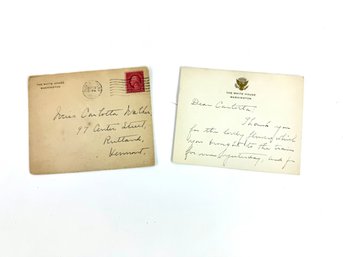 THE WHITE HOUSE
WASHINGTON
Miss Carlotta
97 Center Street,
Rutland,
Vermont.
THE WHITE HOUSE
WASHINGTON
Dear Carlotta:
Thank you
for the lovely flowers which
you brought to the train
for me yesterday, and for